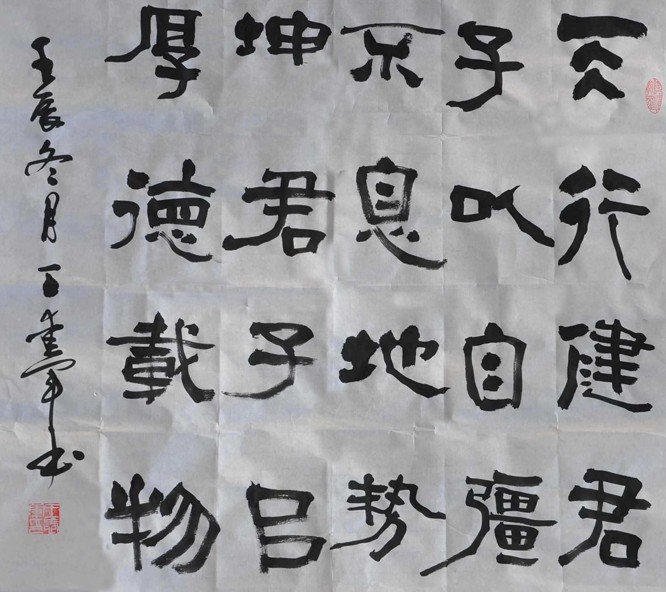 天行健君
子以自彊
不息地势
坤君子㠯
厚德載物
壬辰冬月王军书